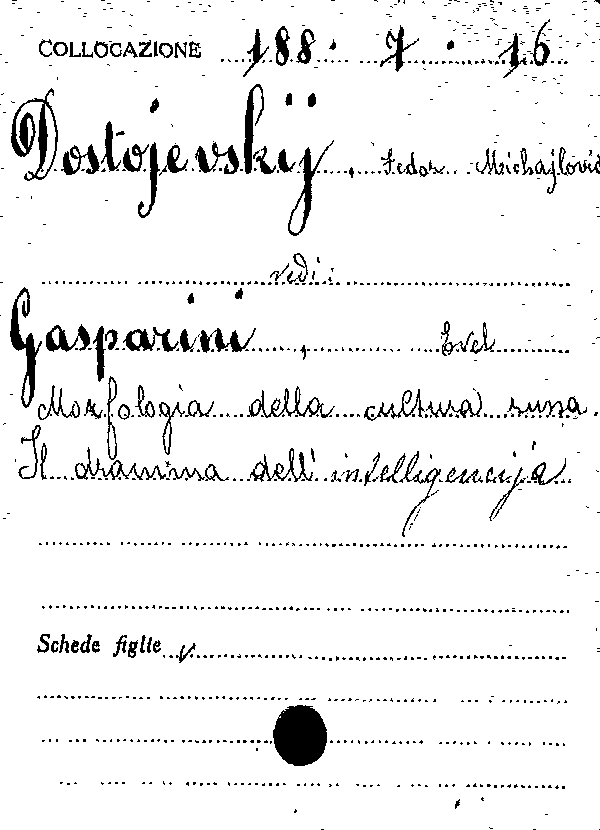 COLLOCAZIONE 188. 7. 16
Dostojevskij, Fedor Michajlovič
vedi:
Gasparini, Evel
Morfologia della cultura russa.
Il dramma dell'intelligencija
Schede figlie v